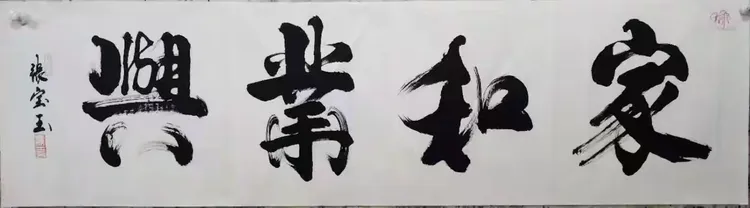 家和業興
張宝玉